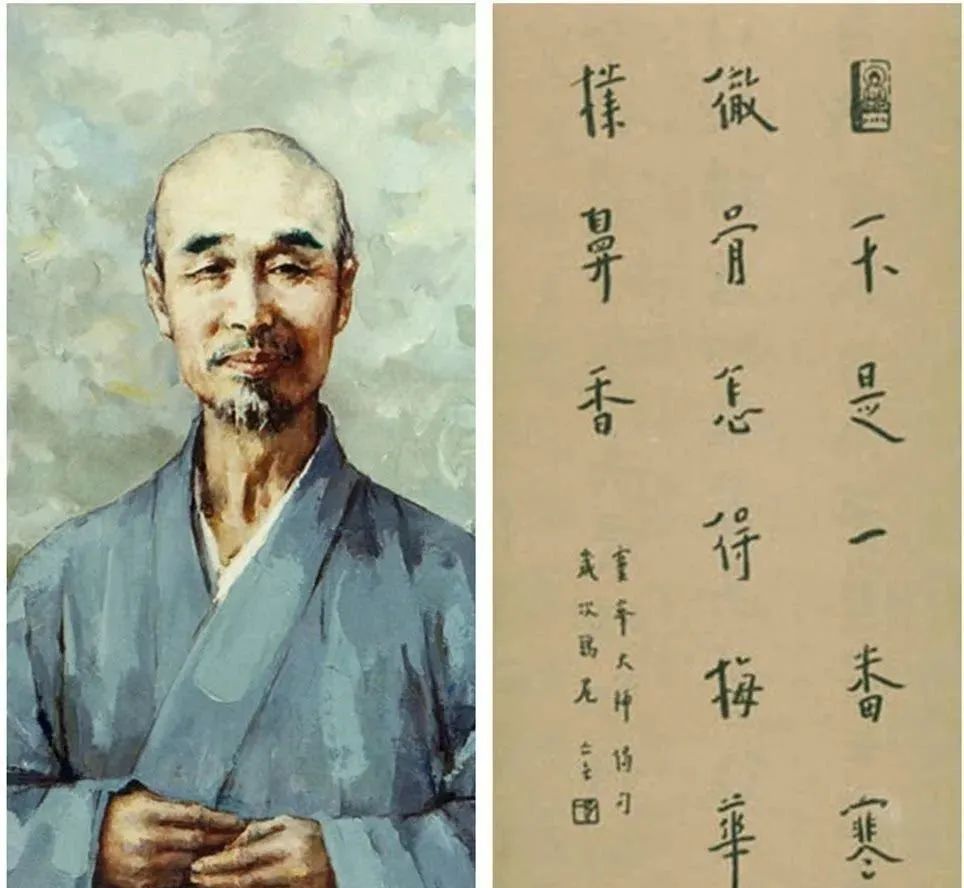 不是一番寒
徹骨怎得梅華
撲鼻香
大師偈句
歲次鶉尾